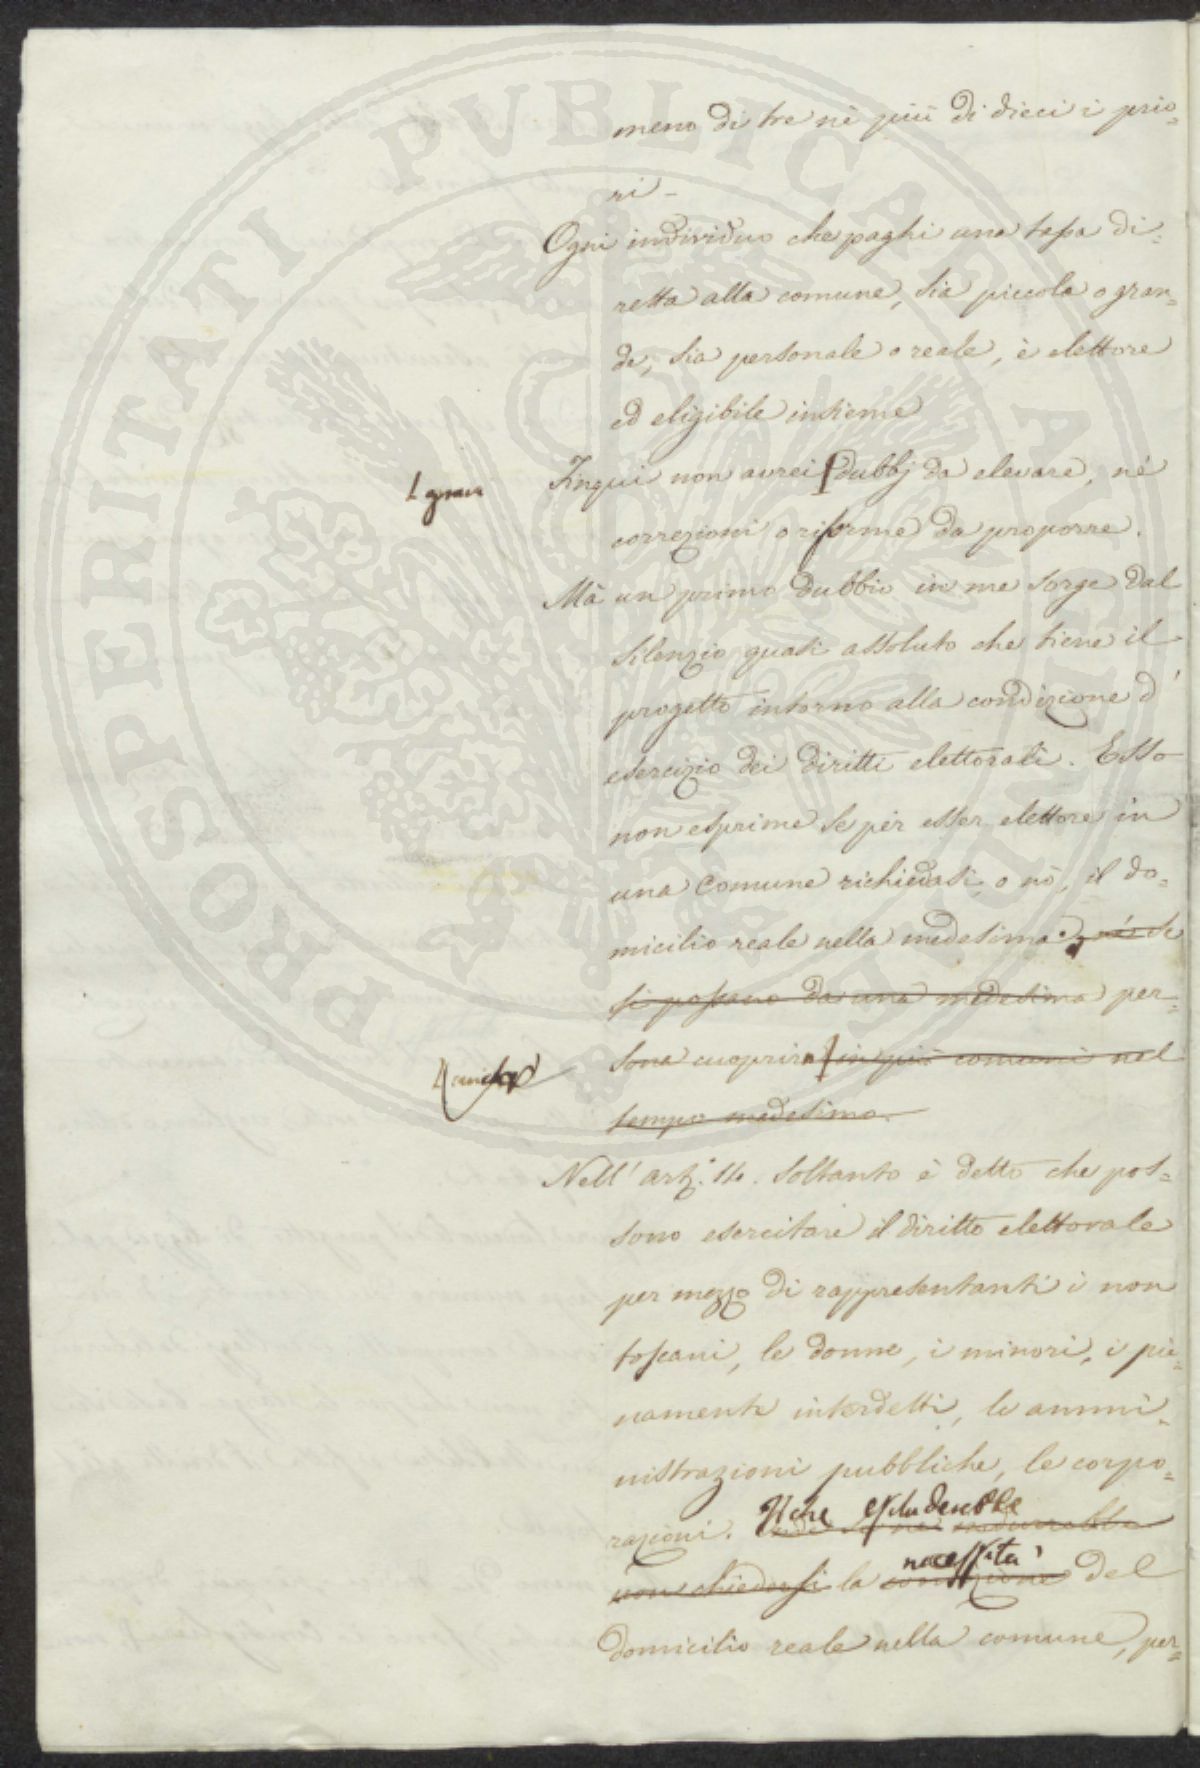 meno di tre nè più di dieci i prio=
ri -
Ogni individuo che paghi una tassa di=
retta alla comune, sia piccola o gran=
de, sia personale o reale, è elettore
ed eligibile insieme
Finqui non avrei dubbj da elevare, nè
gravi
correzioni o riforme da proporre.
Mà un primo dubbio in me sorge dal
silenzio quasi assoluto che tiene il
progetto intorno alla condizione d'
esercizio dei diritti elettorali. Esso
non esprime se per esser elettore in
una Comune richiedasi, o nò, il do=
micilio reale nella medesima, nè se
si possano da una medesima per=
sona cuoprire in più comuni nel
tempo medesimo.
Nell' art. 14. soltanto è detto che pos=
sono esercitare il diritto elettorale
per mezzo di rappresentanti i non
toscani, le donne, i minori, i pie=
namente interdetti, le ammi=
nistrazioni pubbliche, le corpo=
razioni. Il che escluderebbe
non chiedersi la condizione necessità del
domicilio reale nella comune, per=
PROSPERITATI PUBLICAE AUGENDAE